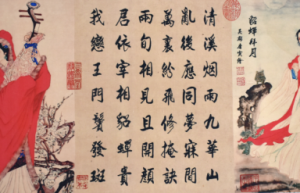 貂蟬拜月
清溪烟雨九華山
亂後應同夢寐間
萬裏紛應修掩訣
兩旬相見且開顏
居依宰相貂蟬貴
我戀王門鬢發斑